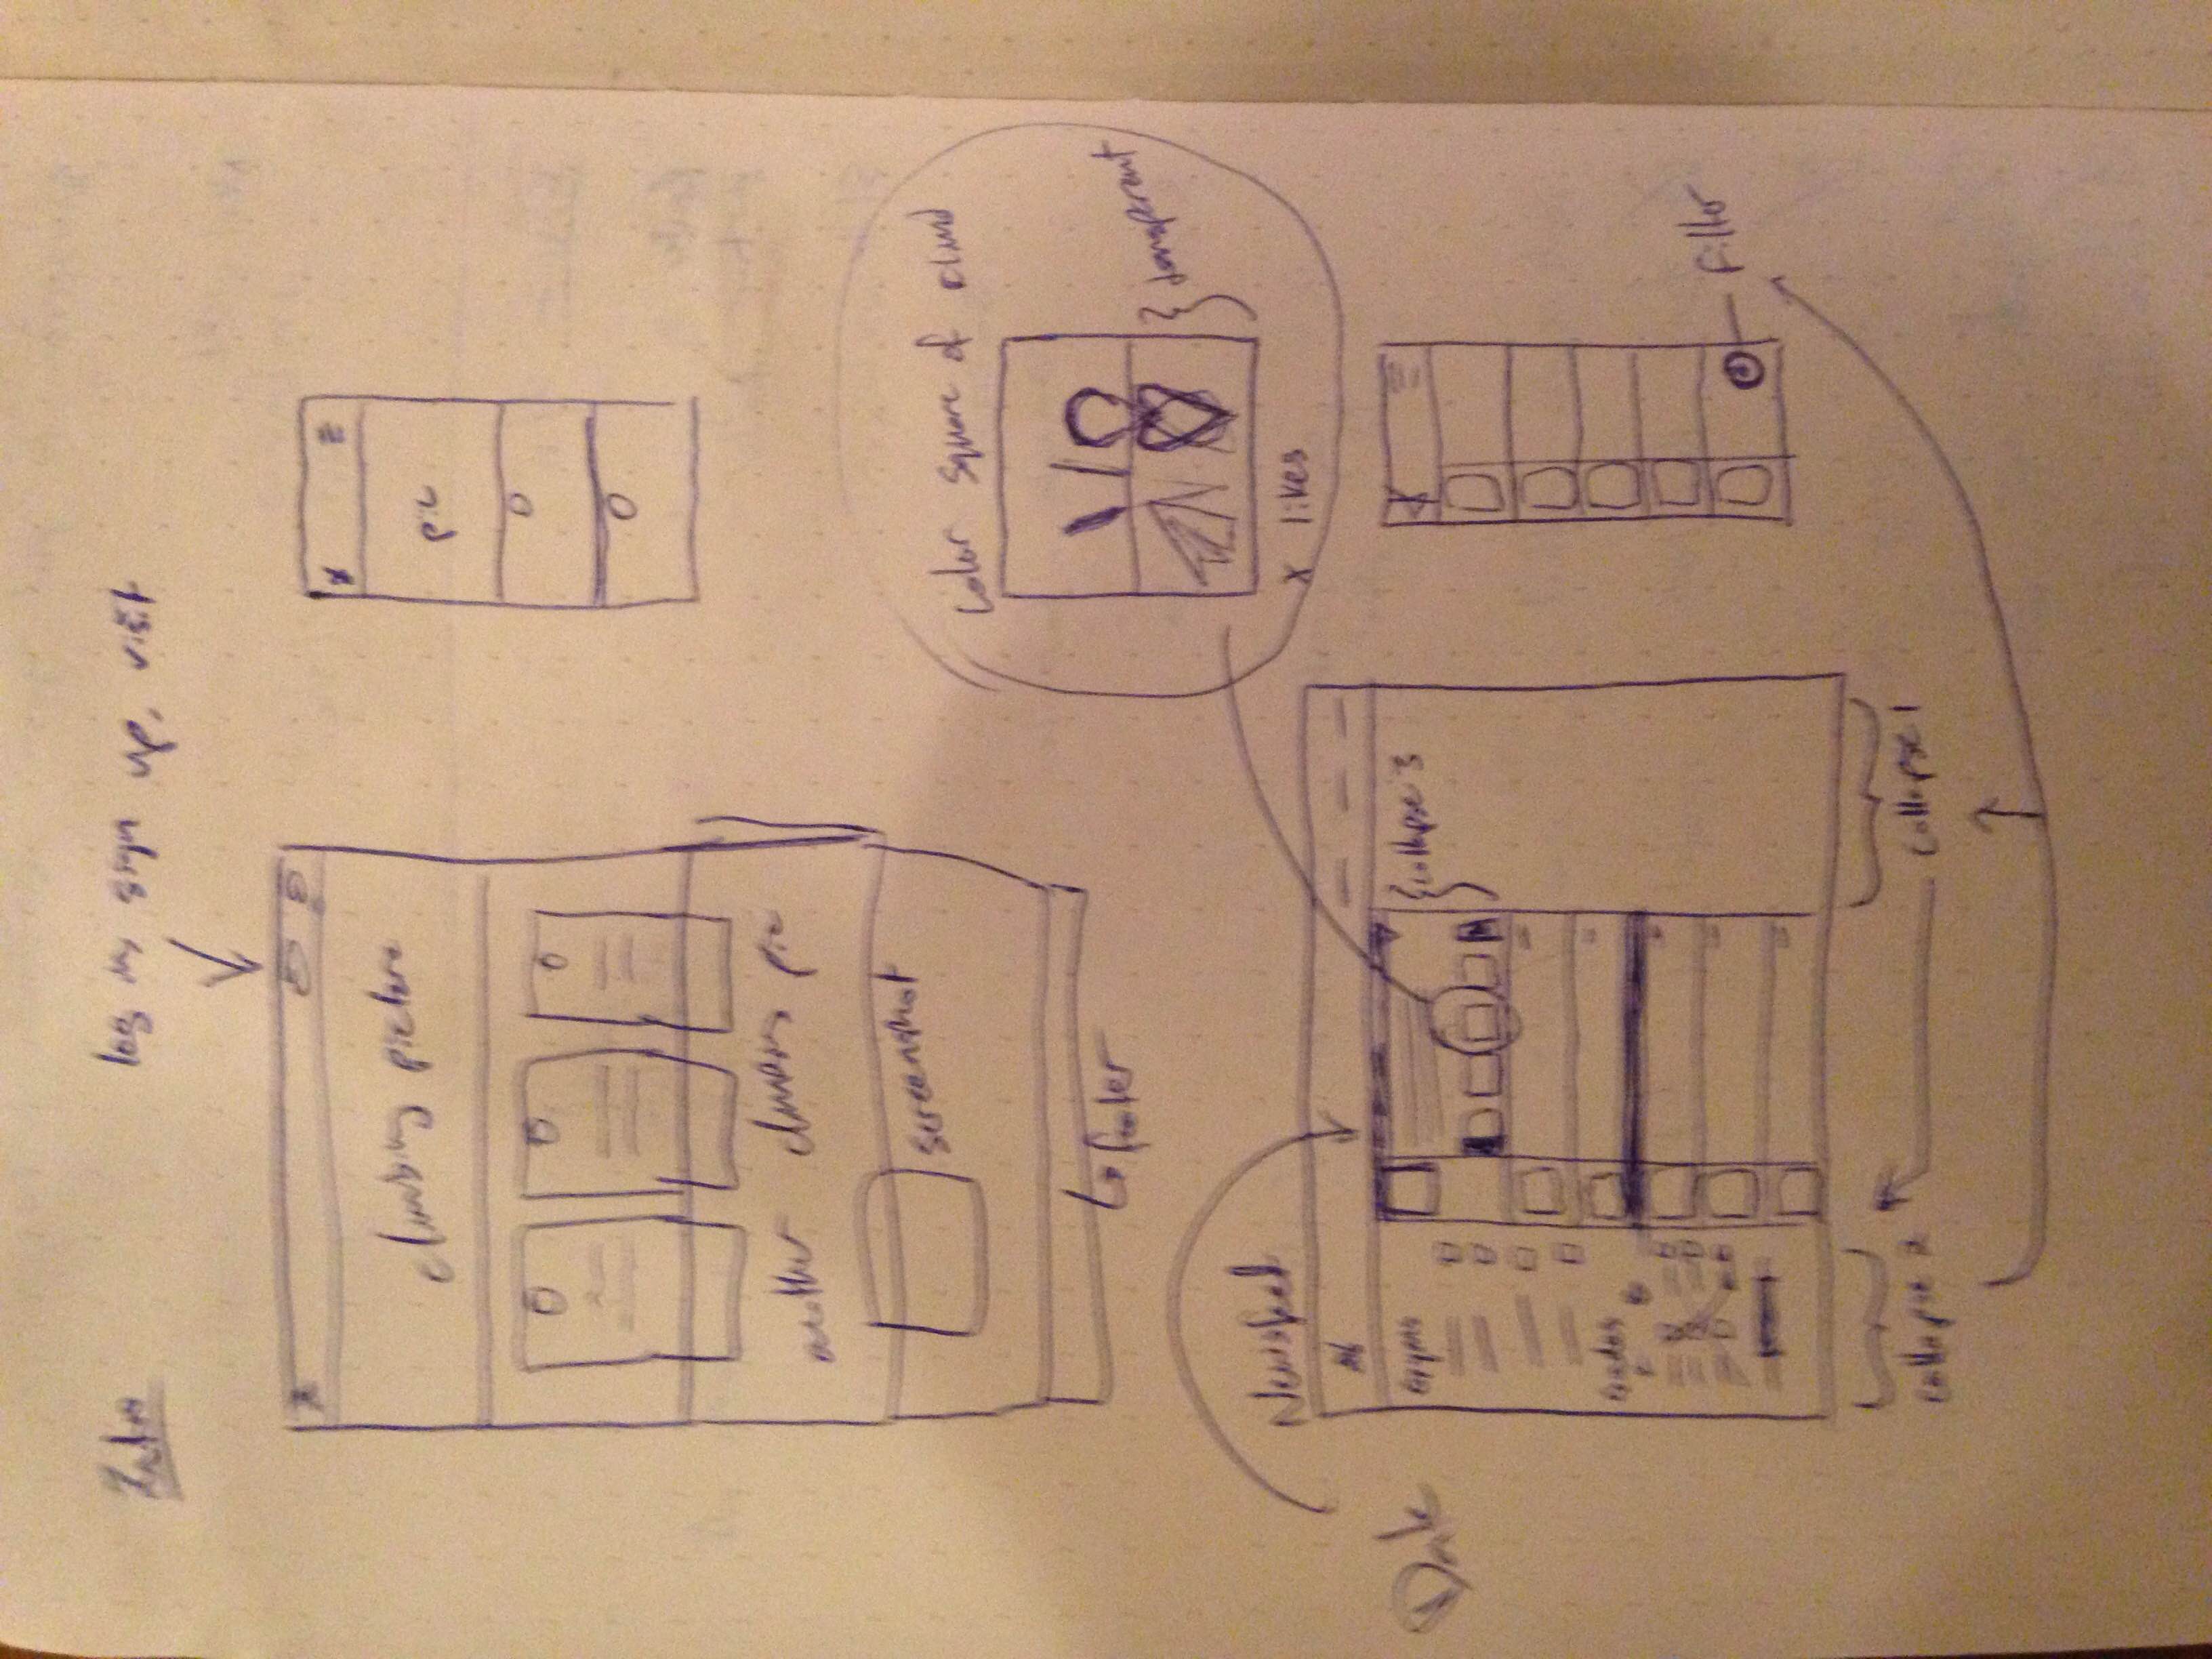 log in, sign up, visit
climbing picture
pic
another climbing pic
screenshot
footer
color square of climb
transparent
x likes
Newsfeed
Gyms
collapse 3
Grades
Filter
collapse 2
collapse 1